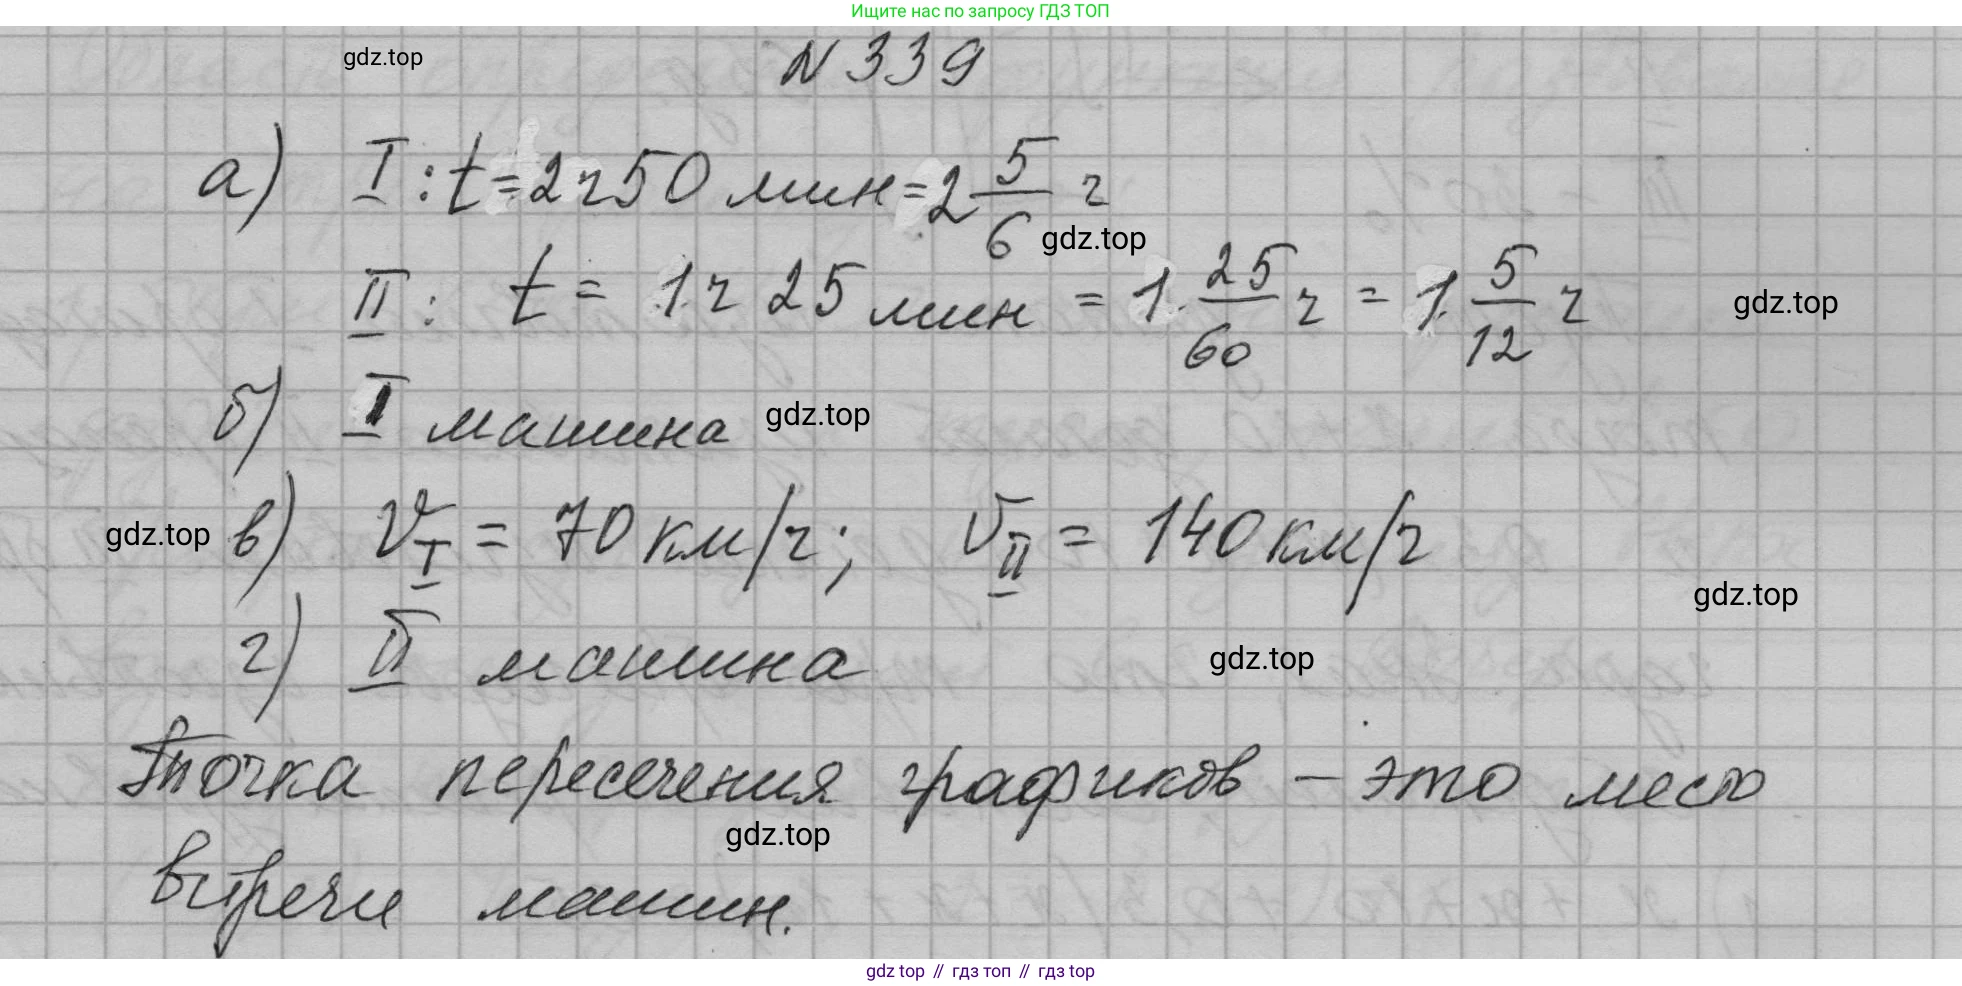 Ищите нас по запросу ГДЗ ТОП
gdz.top
N 339
а) I : t = 2 ч 50 мин = 2 5/6 ч
gdz.top
II : t = 1 ч 25 мин = 1 25/60 ч = 1 5/12 ч
gdz.top
б) I машина
gdz.top
gdz.top
в) V_I = 70 км/ч; V_II = 140 км/ч
gdz.top
г) II машина
gdz.top
Точка пересечения графиков – это место
gdz.top
встречи машин.
gdz top // гдз топ // гдз top